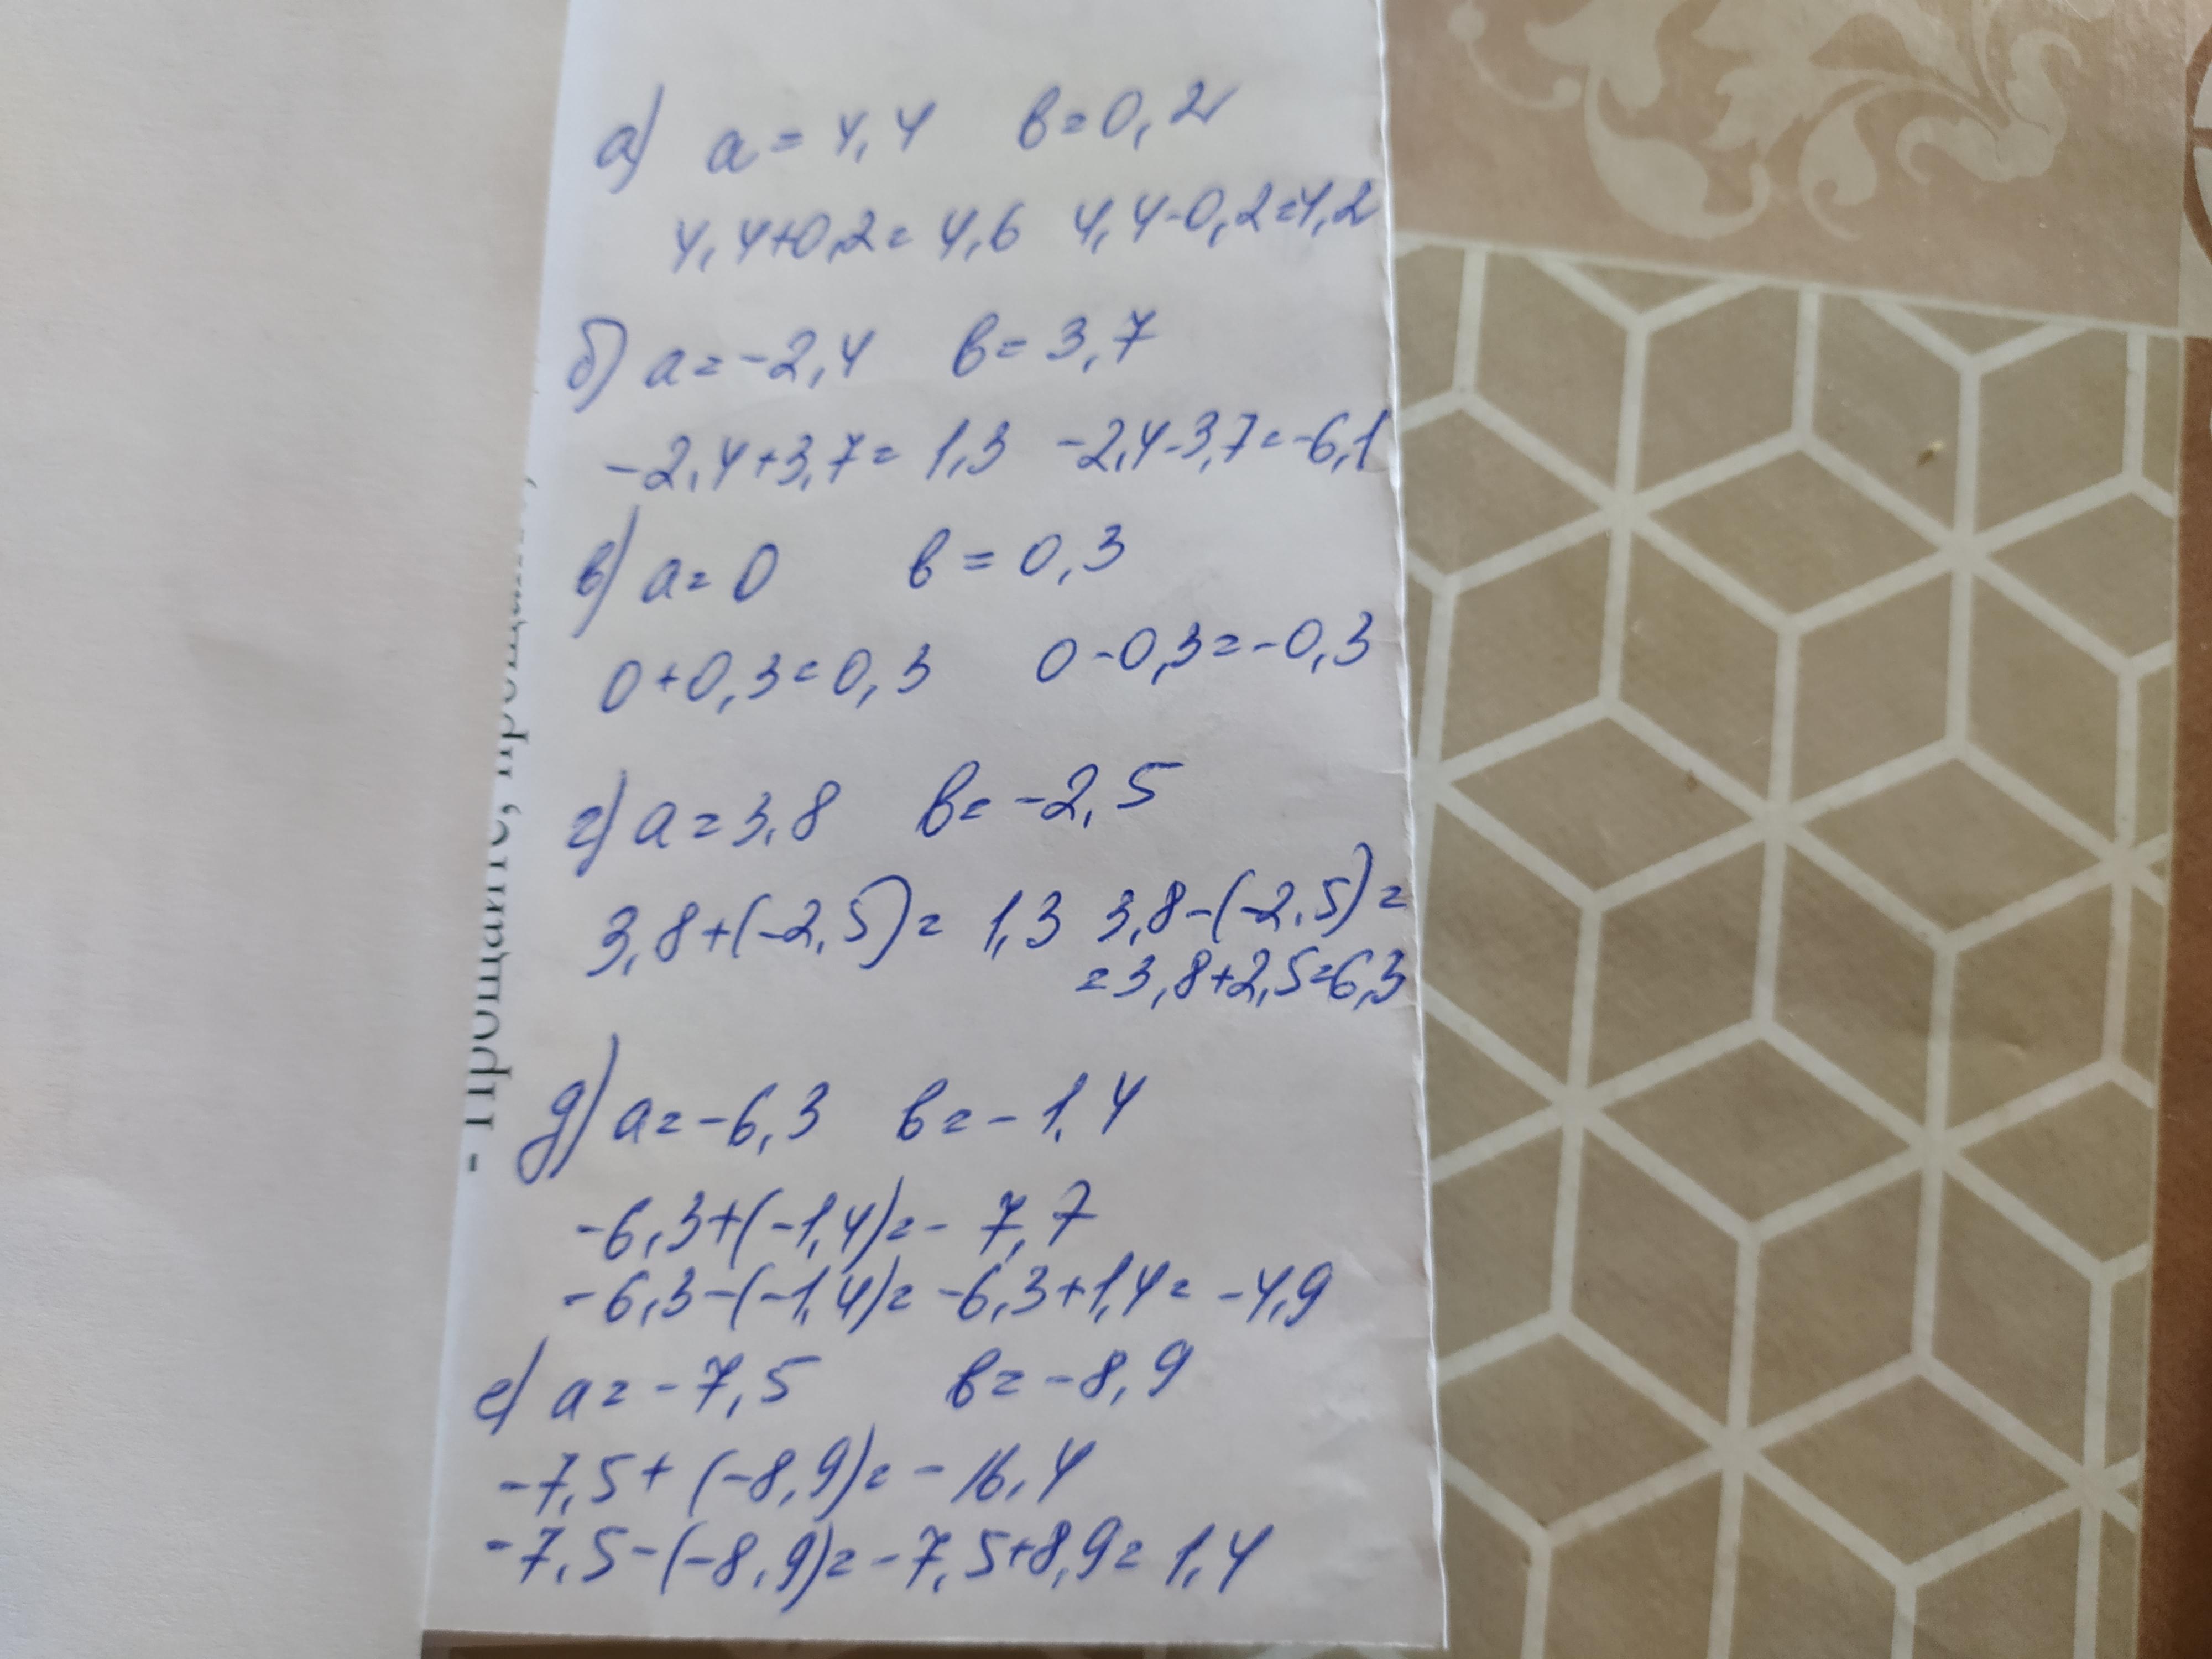 а) a = 4,4 b = 0,2
4,4+0,2 = 4,6 4,4-0,2=4,2
б) a = -2,4 b = 3,7
-2,4+3,7 = 1,3 -2,4-3,7=-6,1
в) a = 0 b = 0,3
0+0,3=0,3 0-0,3=-0,3
г) a = 3,8 b = -2,5
3,8+(-2,5) = 1,3 3,8-(-2,5)=
=3,8+2,5=6,3
д) a = -6,3 b = -1,4
-6,3+(-1,4) = -7,7
-6,3-(-1,4) = -6,3+1,4 = -4,9
е) a = -7,5 b = -8,9
-7,5+(-8,9) = -16,4
-7,5-(-8,9) = -7,5+8,9 = 1,4
- Прощайте,